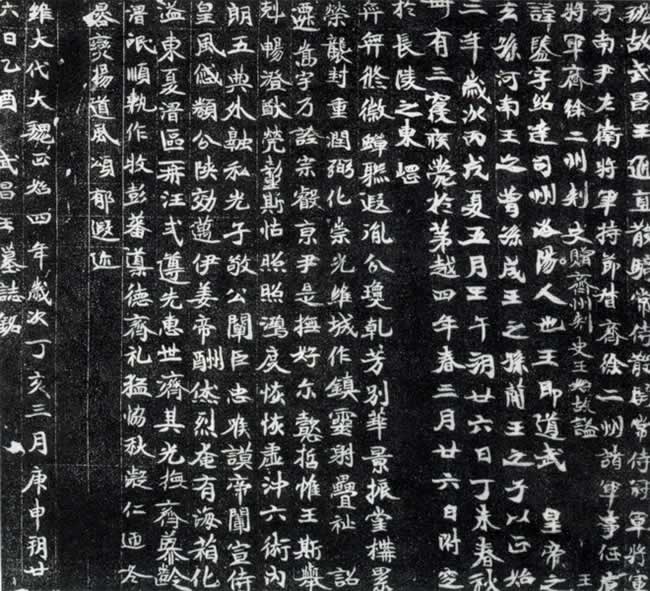 魏故武昌王通直散騎常侍散騎常侍冠軍將軍
河南尹左衛將軍持節督齊徐二州諸軍事征虜
將軍齊徐二州刺史贈齊州刺史王如故謚 王
諱鑒字紹達司州洛陽人也王即道武 皇帝之
玄孫河南王之曾孫成王之孫簡王之子以正始
三年歲次丙戌夏五月壬午朔廿六日丁未春秋
卌有三寑疾薨於第越四年春三月廿六日附窆
於長陵之東崗
弈弈脩徽蟬聯遐胤分瓊乾芳別華景振堂構累
榮襲封重潤弼化崇光維城作鎮靈翔疊祉 詔
遷舊宇乃詮宗叡京尹是撫好尔懿哲惟王斯舉
剋暢澄猷煢嫠斯怙照照鴻度恢恢虛沖六術內
朗五典外融私光子敬公闡臣忠喉謨帝闈宣侍
皇風儀類公陝効邁伊姜帝酬烈奄有海葙化
溢東夏區一弈汪弋遵光惠世濟其光撫齊齡
泯順軌作牧彭蕃導德齊礼猛協秋凝仁逈冬
晷爕揚道風頌郁遐迩
維大代大魏正始四年歲次丁亥三月庚申朔廿
六日乙酉 武昌王墓誌銘